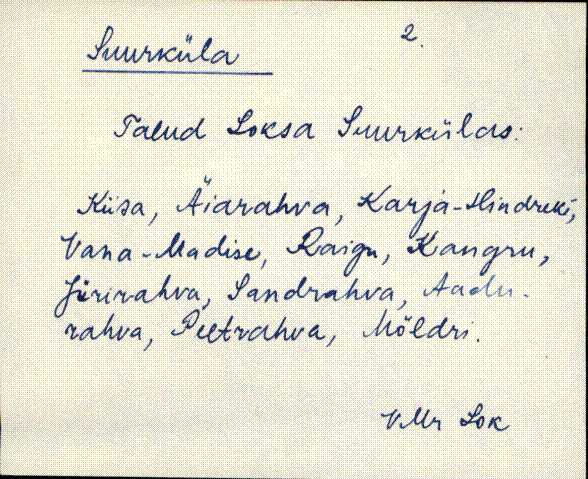 Suurküla 2.
Talud Loksa Suurkülas:
Kiisa, Äiarahva, Karja-Hindreki,
Vana-Madise, Raigu, Kangru,
Jürirahva, Sandrahva, Aadu-
rahva, Peetrahva, Möldri.
VMr Lok